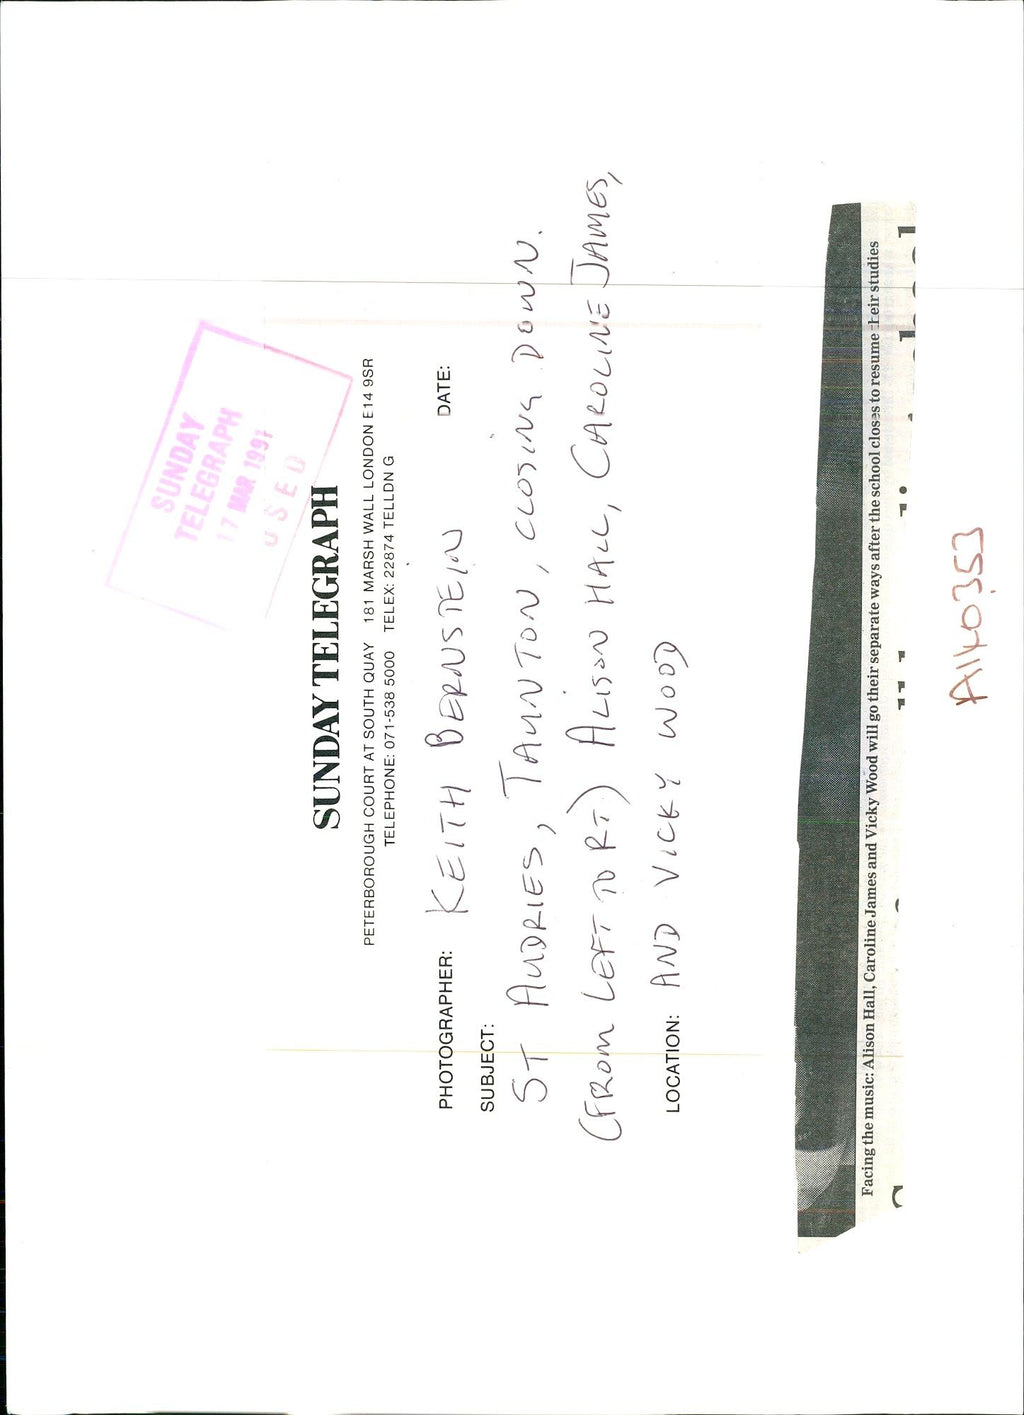 SUNDAY
TELEGRAPH
17 MAR 1991
USED
SUNDAY TELEGRAPH
PETERBOROUGH COURT AT SOUTH QUAY 181 MARSH WALL LONDON E14 9SR
TELEPHONE: 071-538 5000 TELEX: 22874 TELLDN G
PHOTOGRAPHER: KEITH BERNSTEIN DATE:
SUBJECT:
ST AUDRIES, TAUNTON, CLOSING DOWN.
(FROM LEFT TO RT) ALISON HALL, CAROLINE JAMES,
LOCATION: AND VICKY WOOD
Facing the music: Alison Hall, Caroline James and Vicky Wood will go their separate ways after the school closes to resume their studies
A140353